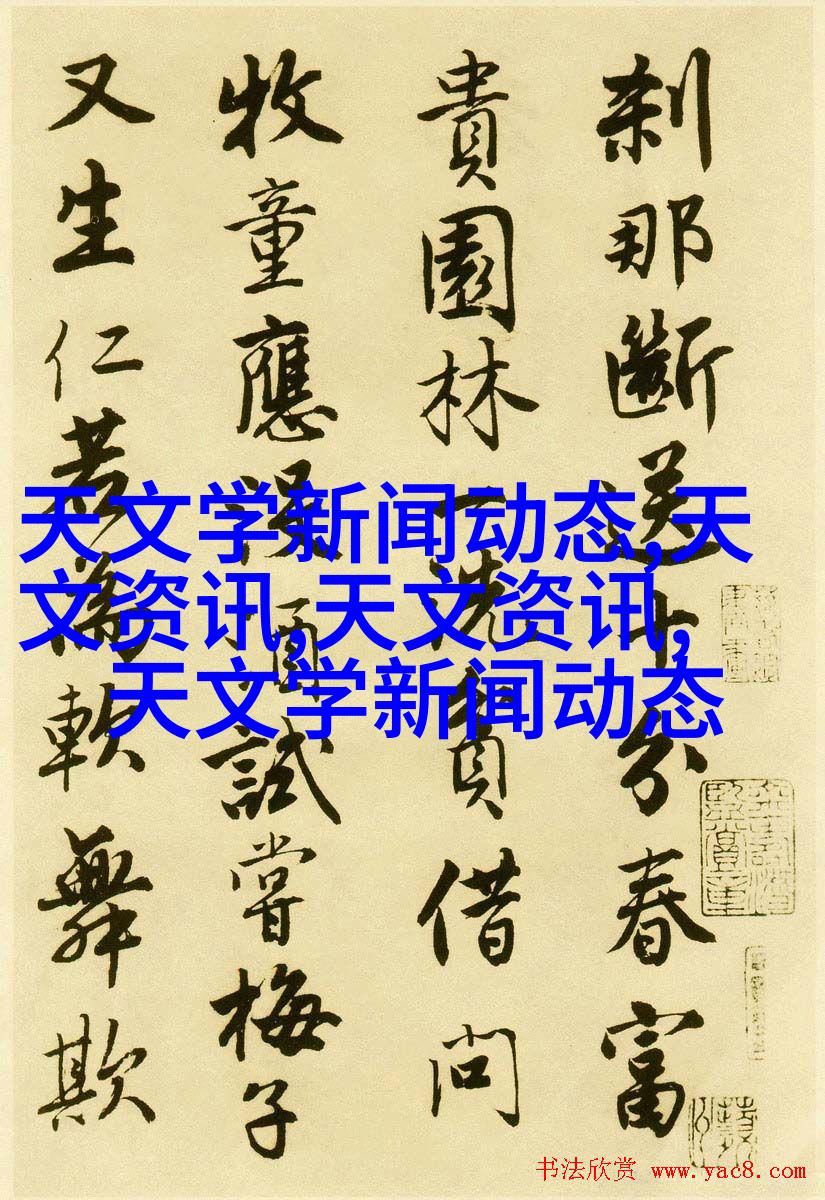 刹那斷送十分春富
貴園林一洗貧借問
牧童應沒酒試嘗梅子
又生仁若為軟舞欺
天文学新闻动态,天
文资讯,天文资讯,
天文学新闻动态
书法欣赏 www.yac8.com